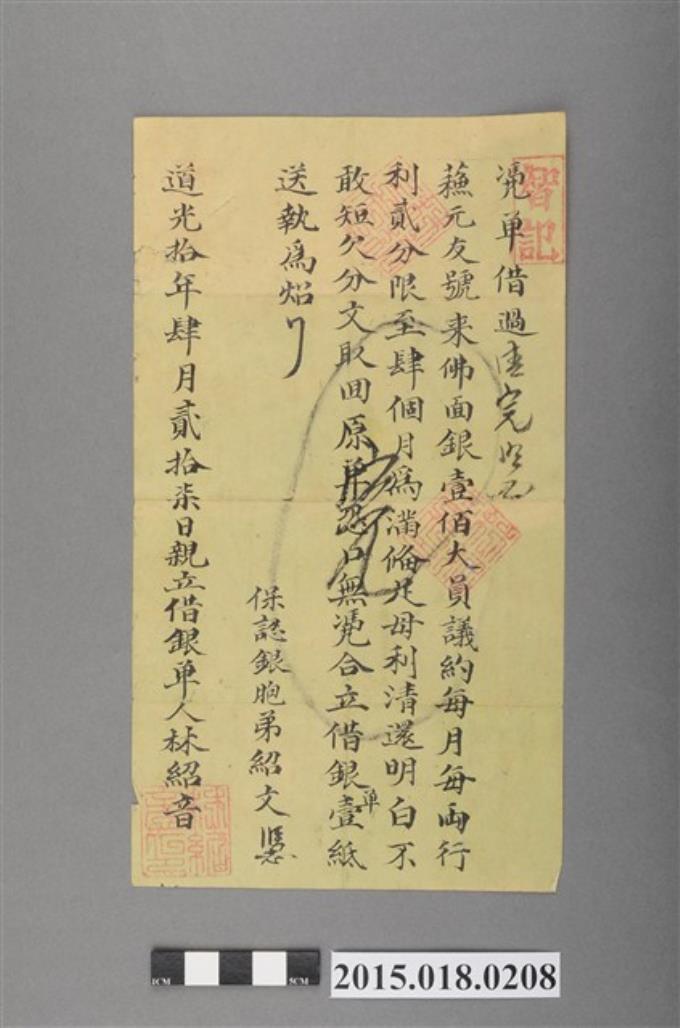 憑單借過
蘓元友號来佛面銀壹佰大員議約每月每両行
利貳分限至肆個月為满俻足母利清還明白不
敢短欠分文取回原单恐口無凴合立借銀单壹紙
送執爲炤
保認銀胞弟紹文
道光拾年肆月貳拾柒日親立借銀单人林紹音
智記
1CM
5CM
2015.018.0208